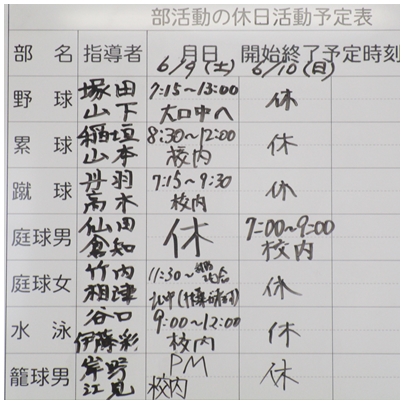 部活動の休日活動予定表
部 名 指導者 月日 開始終了予定時刻
6/9(土) 6/10(日)
野 球 塚田 7:15~13:00 休
山下 大口中へ
累 球 稲垣 8:30~12:00 休
山本 校内
蹴 球 丹羽 7:15~9:30 休
高木 校内
庭球男 仙田 休 7:00~9:00
倉知 校内
庭球女 竹内 11:30~ 休
相津
水 泳 谷口 9:00~12:00 休
伊藤彩 校内
籠球男 岸野 PM 休
江見 校内